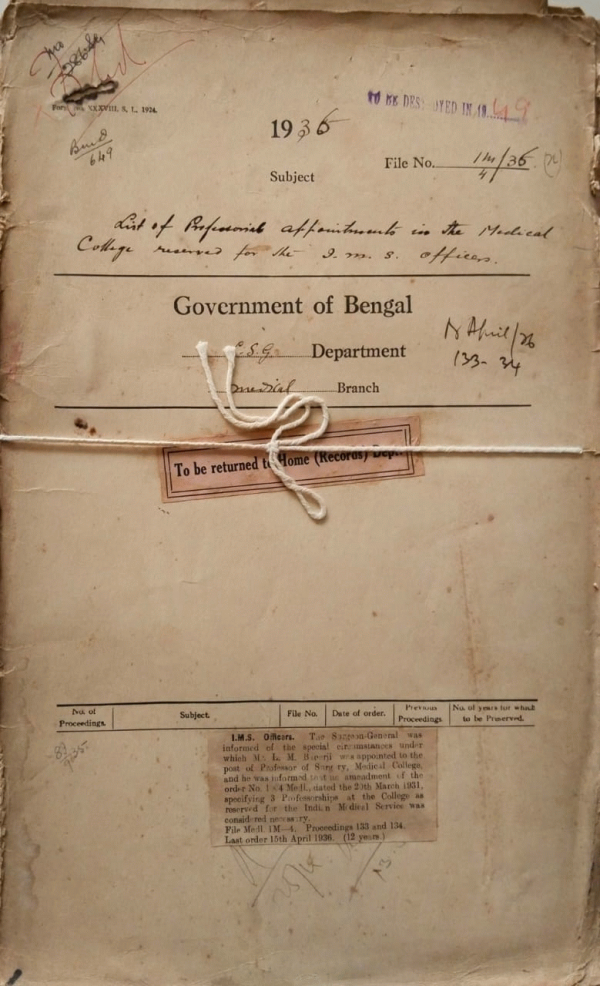 Form No. XXXVIII. S. L., 1924.
Bund
649
TO BE DESTROYED IN 1949
1936
File No. 1M/4/36
Subject
List of Professorial appointments in the Medical
College reserved for the I. M. S. officers.
Government of Bengal
L.S.G. Department
medical Branch
April/36
133-34
To be returned to Home (Records) Dept.
No. of Proceedings. Subject. File No. Date of order. Previous Proceedings. No. of years for which to be Preserved.
I.M.S. Officers. The Surgeon-General was
informed of the special circumstances under
which Mr. L. M. Banerji was appointed to the
post of Professor of Surgery, Medical College,
and he was informed that no amendment of the
order No. Medl., dated the 20th March 1931,
specifying 3 Professorships at the College as
reserved for the Indian Medical Service was
considered necessary.
File Medl. 1M—4. Proceedings 133 and 134.
Last order 15th April 1936. (12 years.)